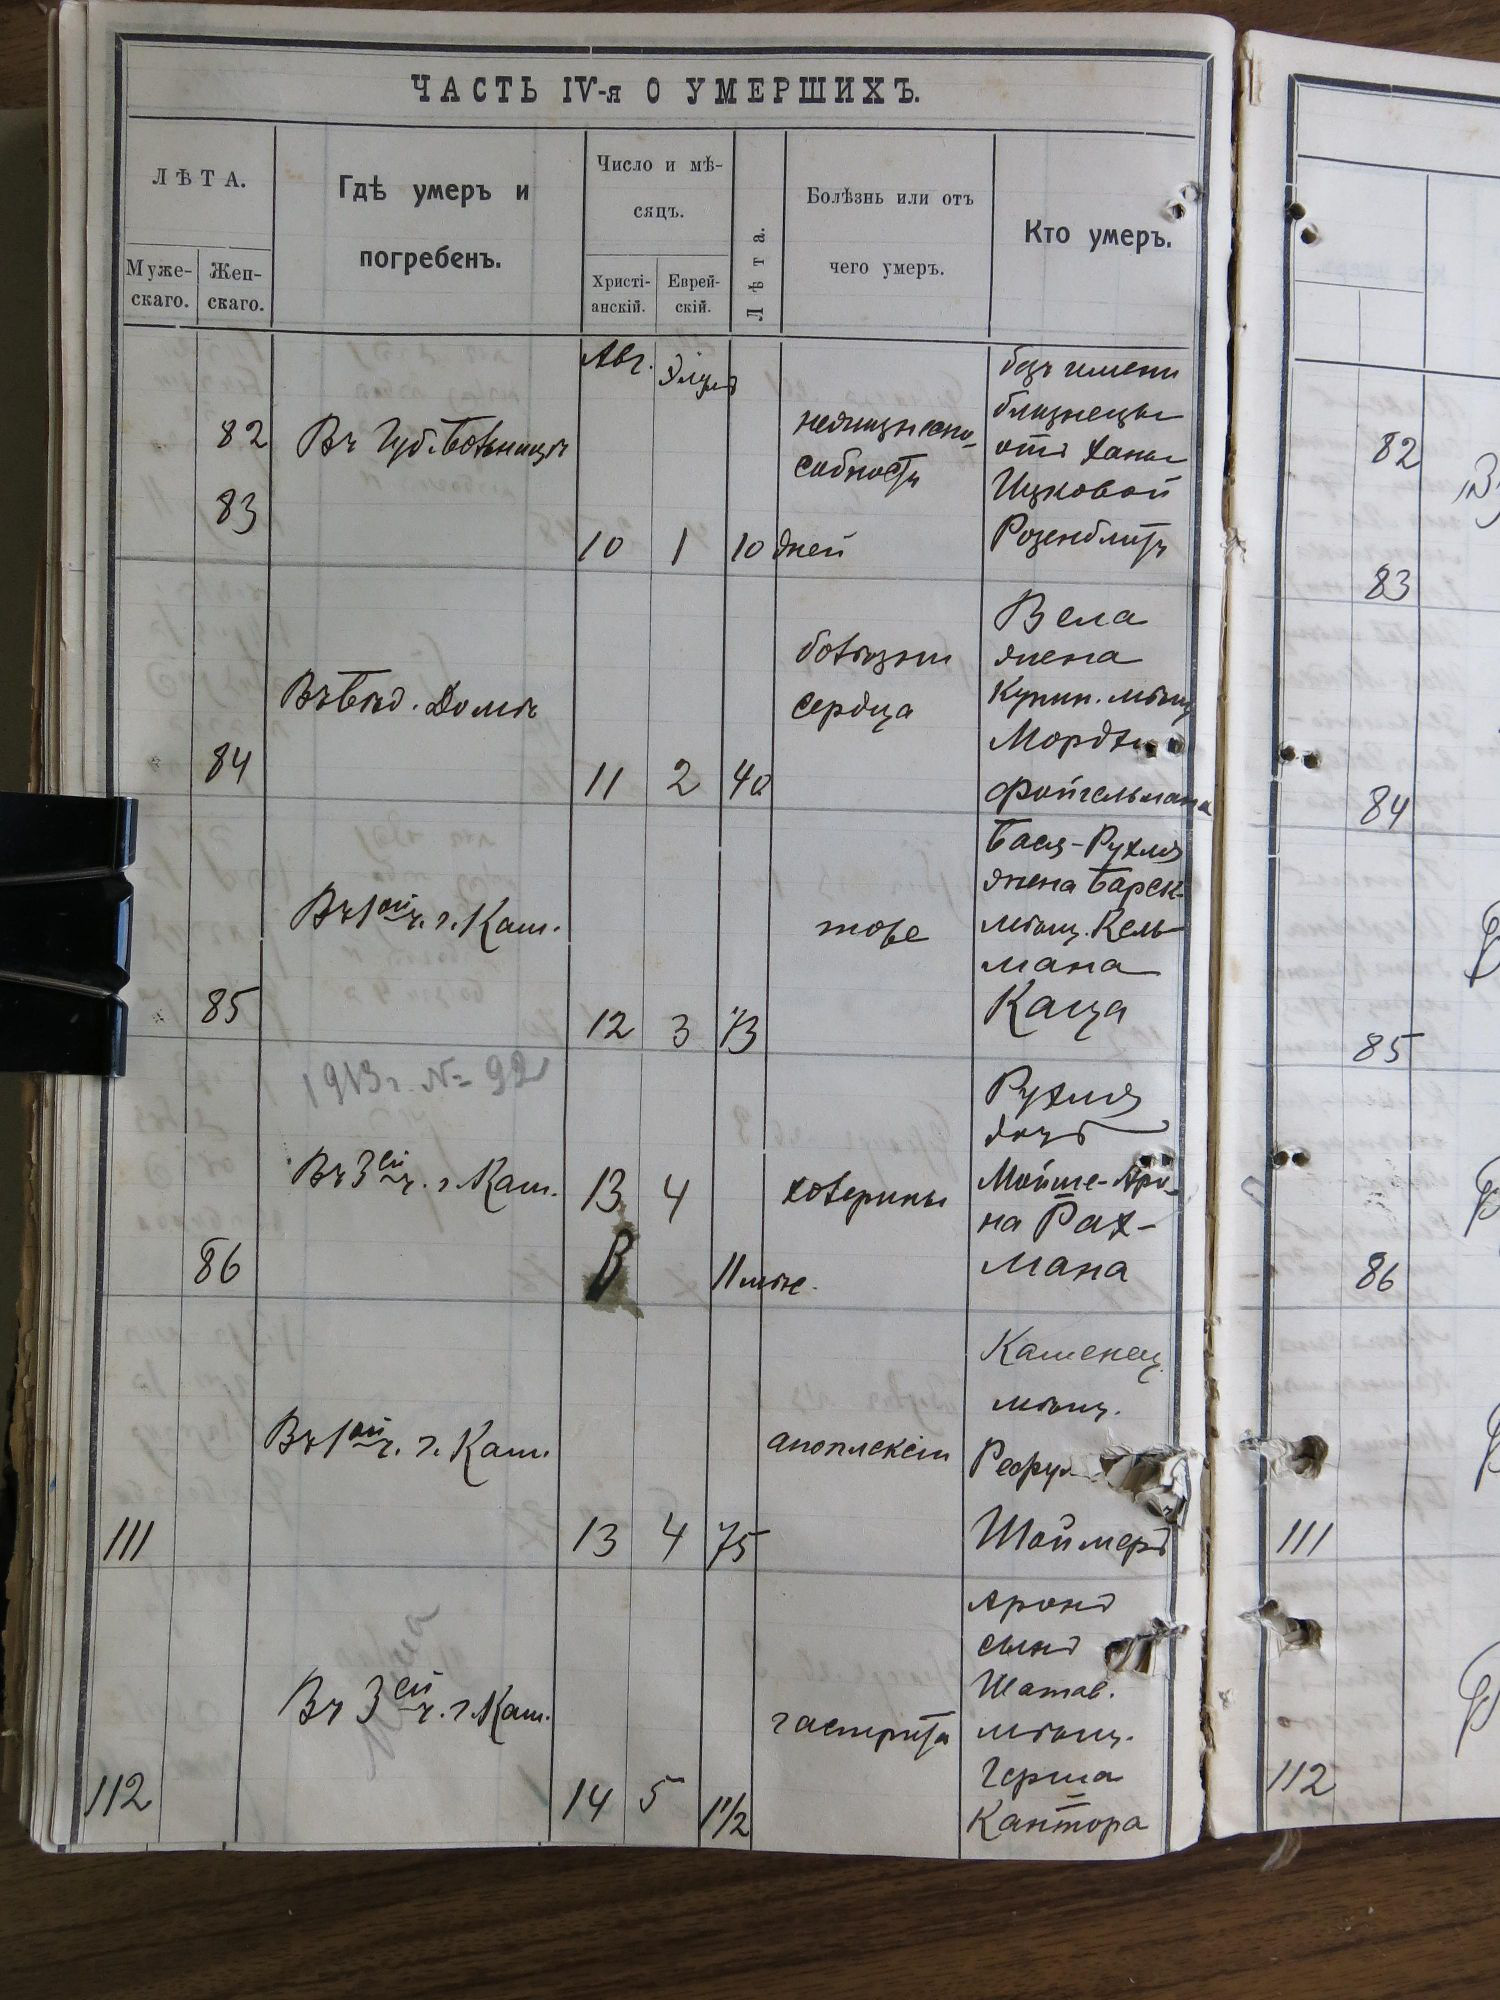 ЧАСТЬ IV-я О УМЕРШИХЪ.
ЛѢТА.
Муже-
скаго.
Жен-
скаго.
Гдѣ умеръ и
погребенъ.
Число и мѣ-
сяцъ.
Христі-
анскій.
Еврей-
скій.
Лѣта.
Болѣзнь или отъ
чего умеръ.
Кто умеръ.
Авг.
Элулъ
82
83
Въ Губ. Больницѣ
10
1
10 дней
нежизнеспо-
собности
безъ имени
близнецы
отъ Ханы
Ицковой
Розенблитъ
84
Въ Бѣд. Домѣ
11
2
40
болѣзни
сердца
Вела
жена
Купин. мѣщ.
Мордх
Фойгельмана
85
Въ 1ой ч. г. Кам.
12
3
73
тоже
Бася-Рухля
жена Барск.
мѣщ. Кель-
мана
Каца
1913 г. № 92
86
Въ 3ей ч. г. Кам.
13
4
11 мѣс.
холерины
Рухля
дочь
Мойше-Аро-
на Рах-
мана
111
Въ 1ой ч. г. Кам.
13
4
75
апоплексіи
Каменец.
мѣщ.
Шоймеръ
112
Въ 3ей ч. г. Кам.
14
5
1 1/2
гастрита
Аронъ
сынъ
Шатав.
мѣщ.
Герша
Кантора
82
83
84
85
86
111
112